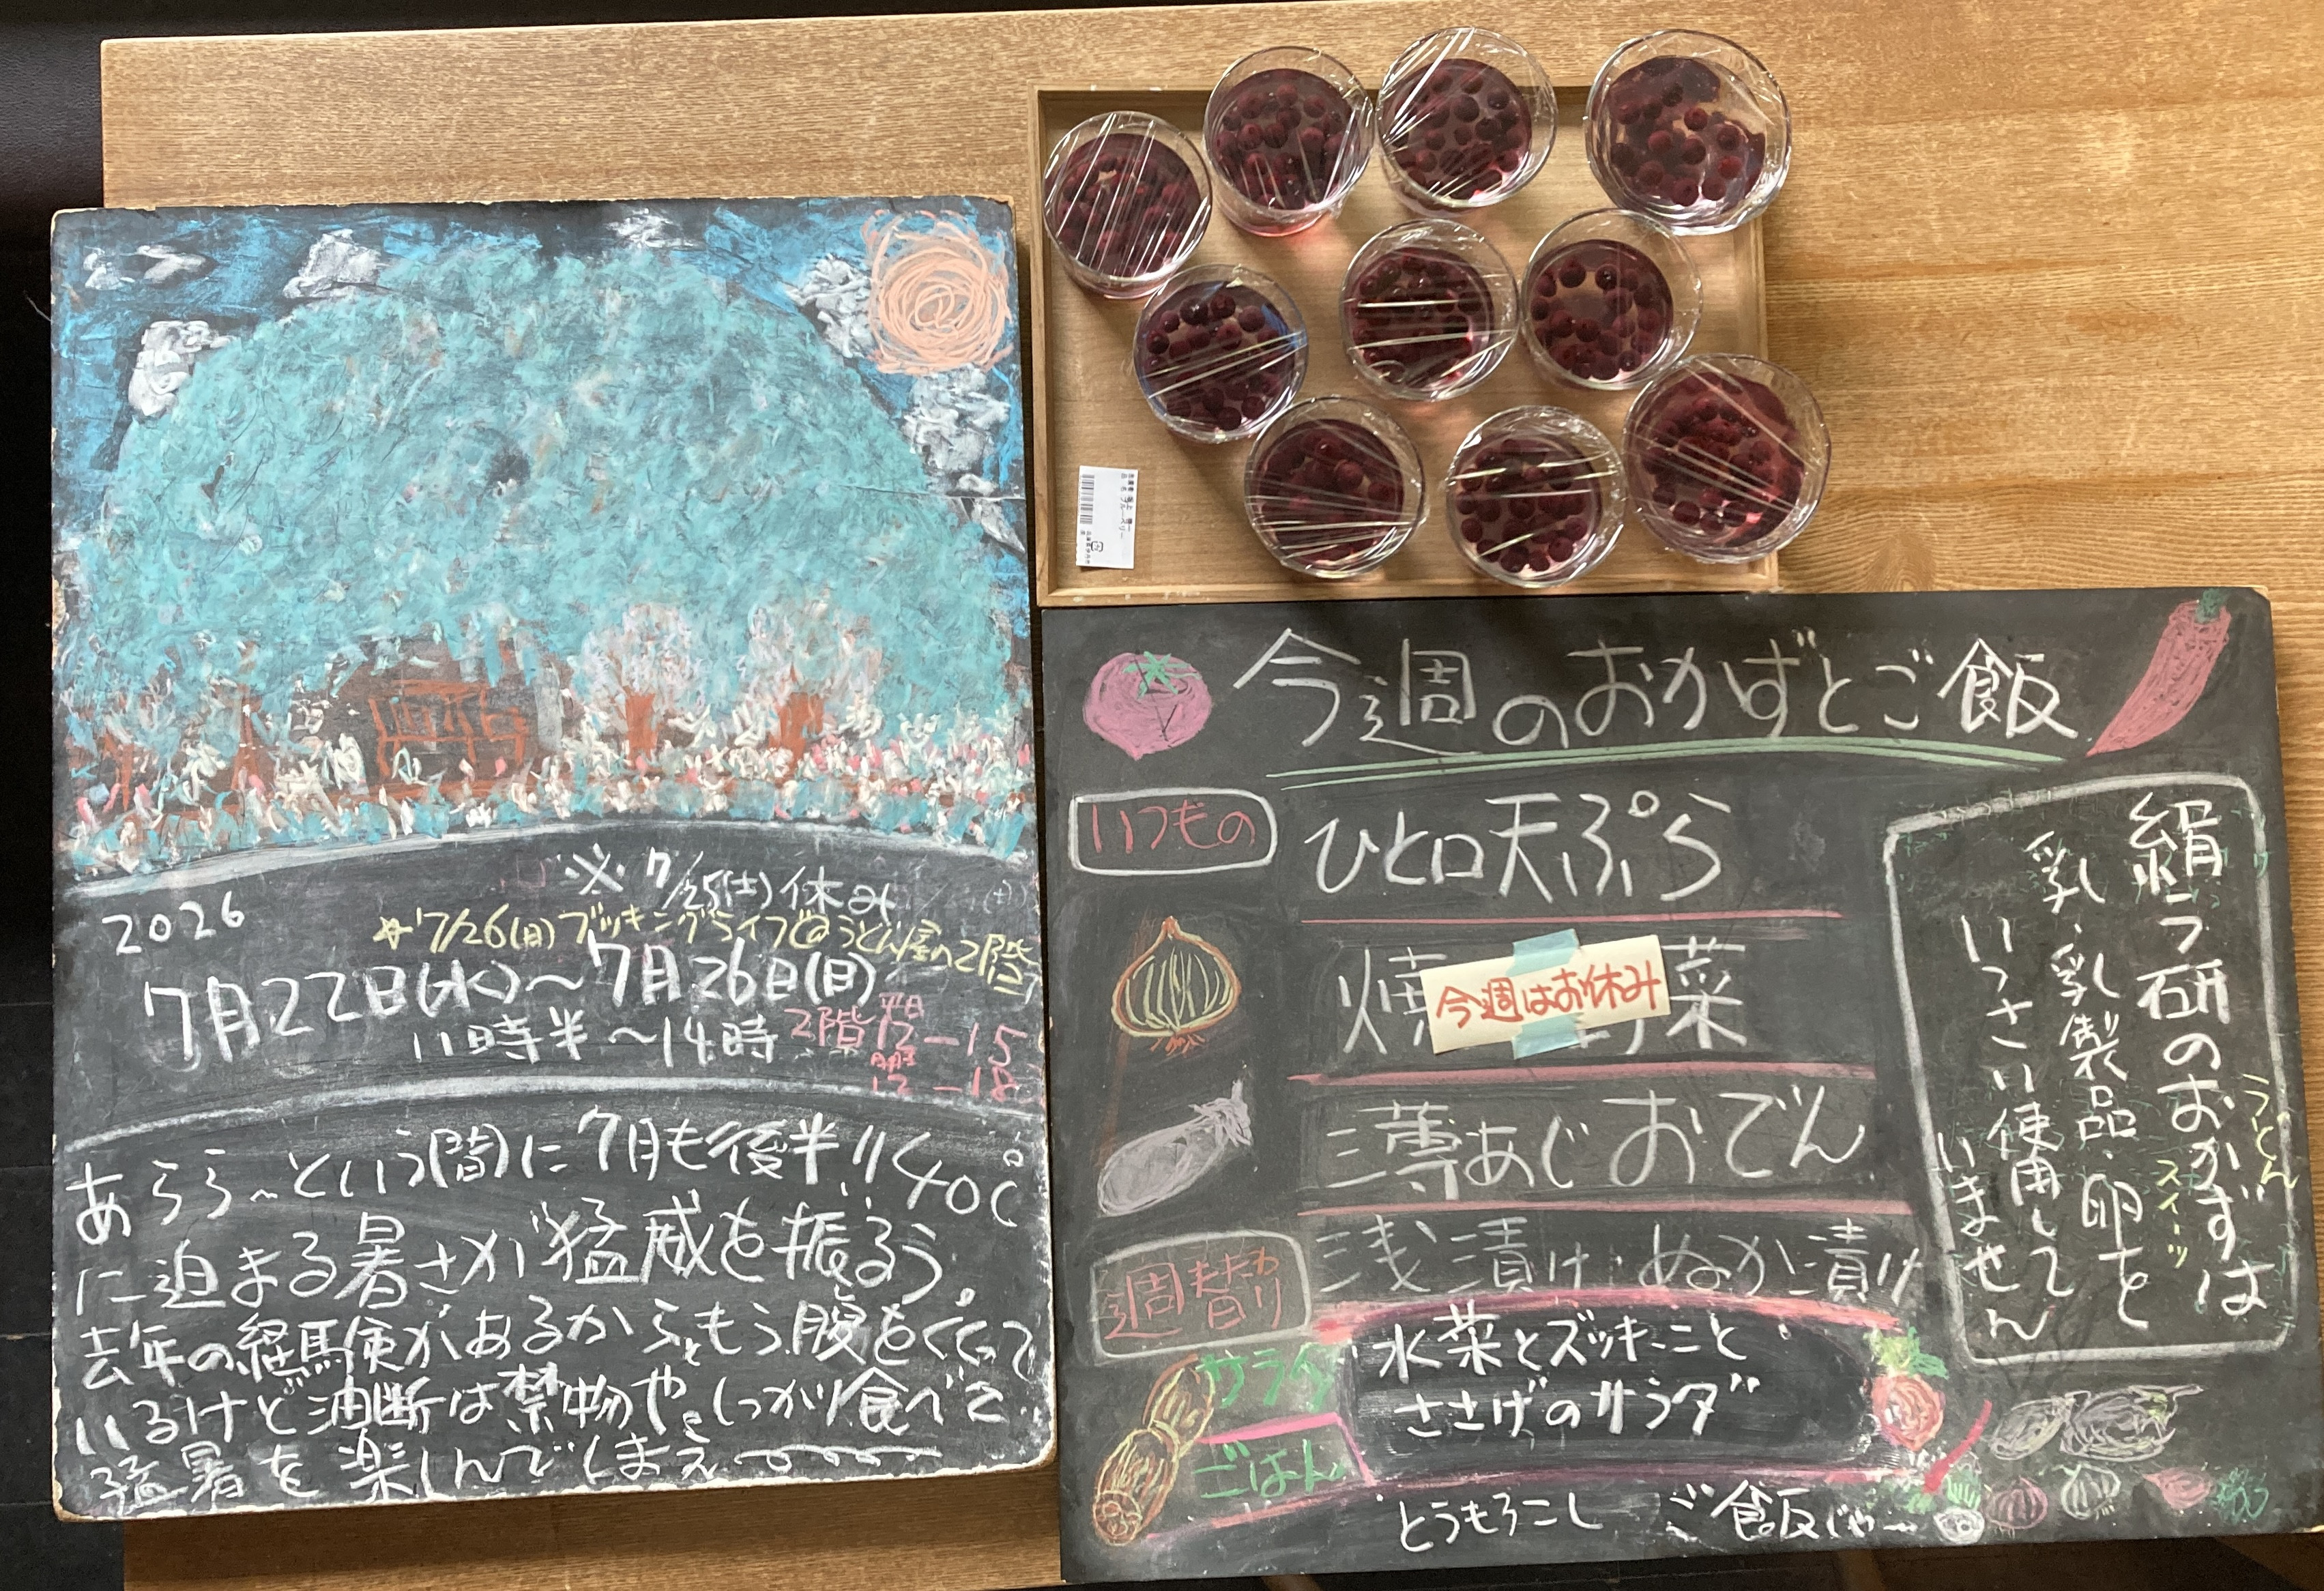 ※7/25(土)休み
2026
☆7/26(日)ブッキングライブ@うどん屋の2階
7月22日(水)〜7月26日(日)
11時半〜14時
2階平日12-15
12-18
あらら〜という(間)に7月も後半!!40℃
に迫まる暑さが猛威を振るう。
去年の経験があるから、もう腹をくくって
いるけど油断は禁物や。しっかり食べて
猛暑を楽しんでしまえ〜
今週のおかずとご飯
いつもの
ひと口天ぷら
焼
今週はお休み
菜
薄あじおでん
浅漬け・ぬか漬け
週替り
サラダ
水菜とズッキーニと
ささげのサラダ
ごはん
とうもろこし ご飯じゃー
絹ラ研のおかずは
うどん
スイーツ
乳・乳製品・卵を
いっさい使用して
いません
ブルーベリー